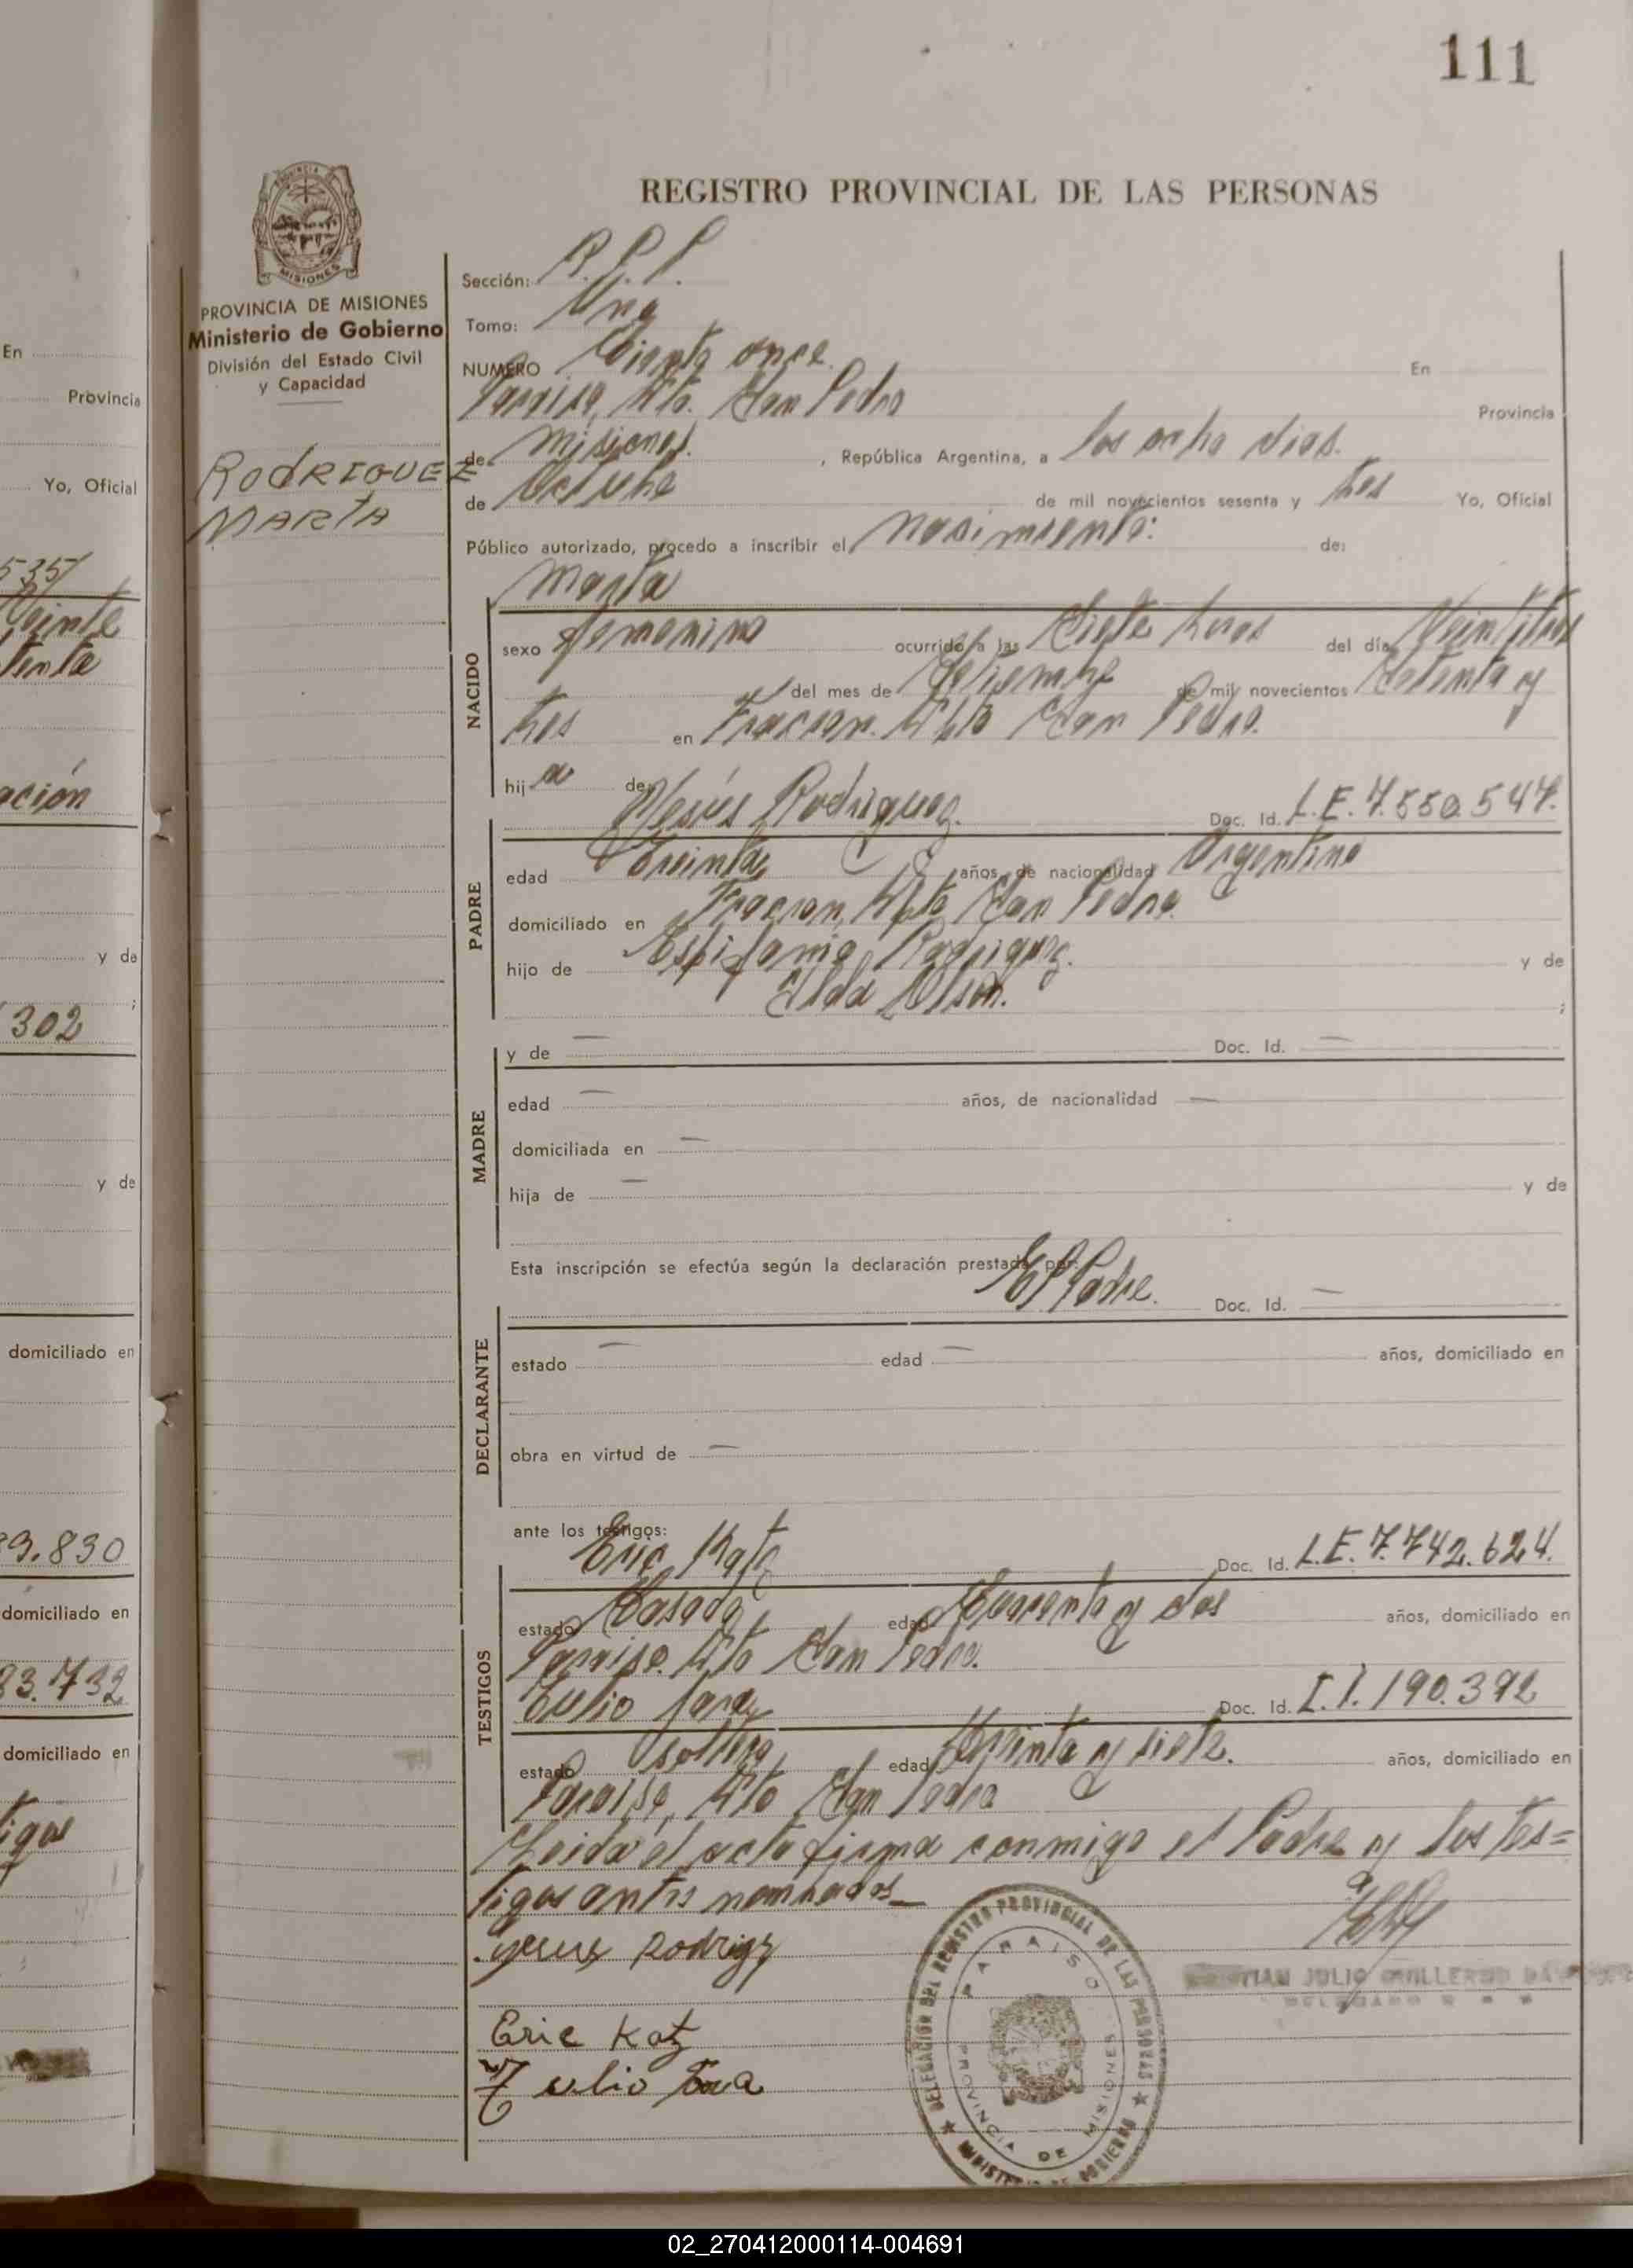 111
REGISTRO PROVINCIAL DE LAS PERSONAS
MISIONES
PROVINCIA DE MISIONES
Ministerio de Gobierno
División del Estado Civil
y Capacidad
RODRIGUEZ
MARTA
Sección: R.P.P.
Tomo: Uno
NUMERO Ciento once. En
Paraiso, Dto. San Pedro Provincia
de Misiones. , República Argentina, a los ocho dias.
de Octubre de mil novecientos sesenta y tres Yo, Oficial
Público autorizado, procedo a inscribir el nacimiento: de:
Marta
NACIDO
sexo femenino ocurrido a las Siete horas del día
del mes de de mil novecientos Setenta y
tres en Fracran. Dpto San Pedro.
hija de Jesús Rodriguez. Doc. Id. L.E. 7.550.547.
PADRE
edad Treinta años, de nacionalidad Argentina
domiciliado en Fracran, Dpto San Pedro.
hijo de Rodriguez. y de
Elda ;
MADRE
y de — Doc. Id. —
edad — años, de nacionalidad —
domiciliada en —
hija de — y de
Esta inscripción se efectúa según la declaración prestada por:
El Padre. Doc. Id. —
DECLARANTE
estado — edad — años, domiciliado en
obra en virtud de —
ante los testigos:
Eric Katz Doc. Id. L.E. 7.742.624.
TESTIGOS
estado Casado edad Cuarenta y dos años, domiciliado en
Paraiso. Dto San Pedro.
Julio Doc. Id. 190.392
estado soltero edad Treinta y siete. años, domiciliado en
Paraiso, Dto San Pedro
Leida el acta firma conmigo el Padre y los tes=
tigos antes nombrados_
Eric Katz
Julio
DELEGACION DEL REGISTRO PROVINCIAL DE LAS PERSONAS
PARAISO
PROVINCIA DE MISIONES
MINISTERIO DE GOBIERNO
JULIO GUILLERMO
En
Provincia
Yo, Oficial
535
Veinte
tenta
ación
y de
;
302
y de
domiciliado en
9.830
domiciliado en
83.732
domiciliado en
tigos
02_270412000114-004691